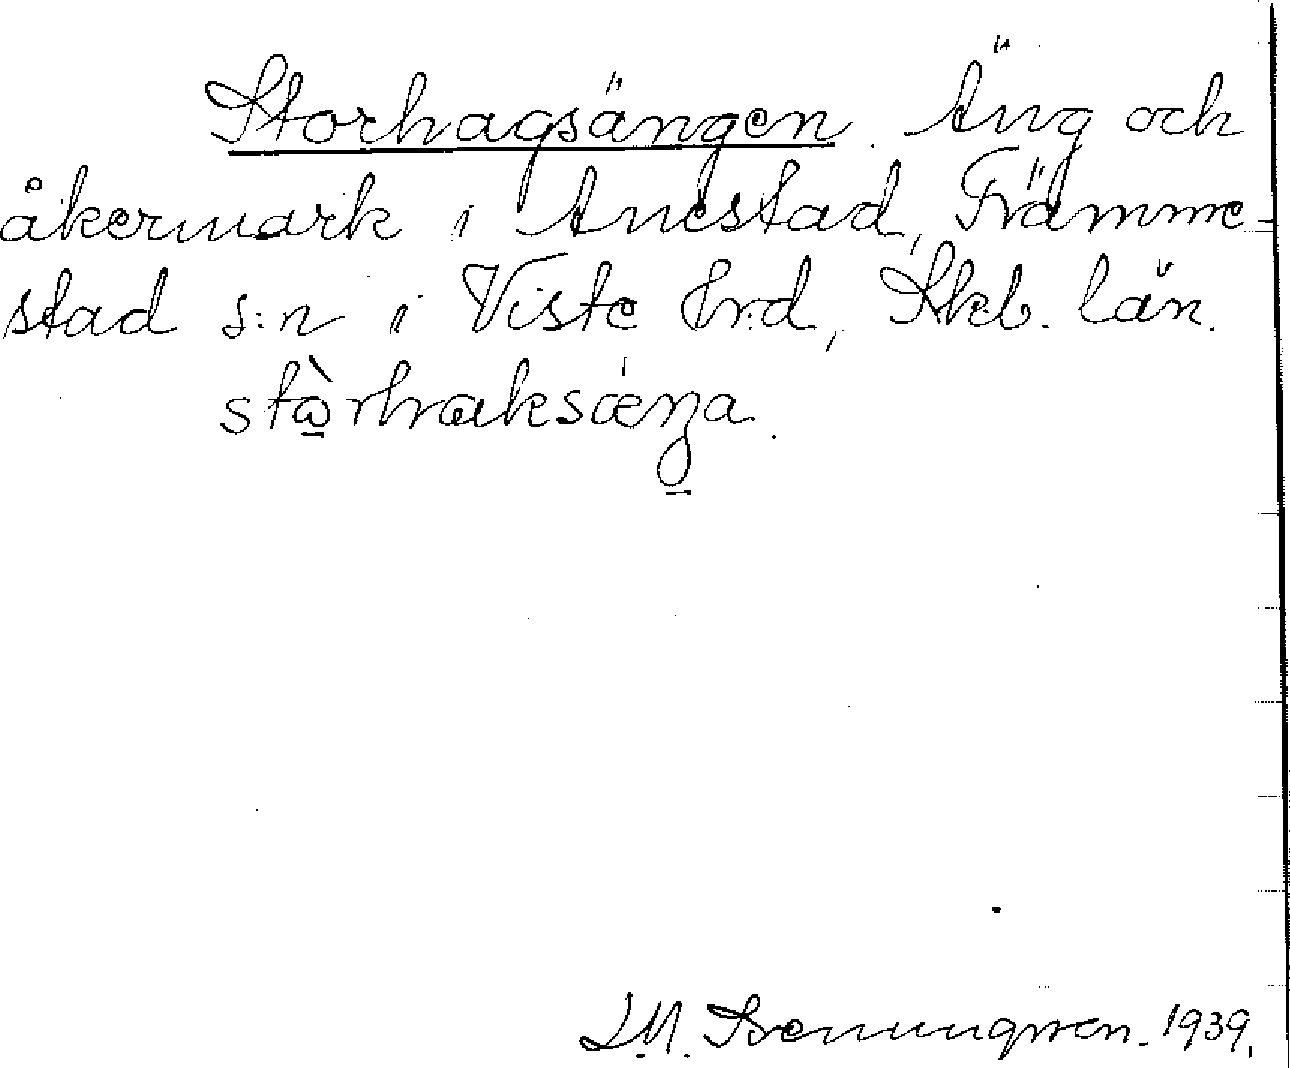 Storhagsängen. Äng och
åkermark i Anestad, Främme-
stad s:n i Viste hrd, Skb. län.
stòrhaksæŋa.
L.M. Svenungsson. 1939.